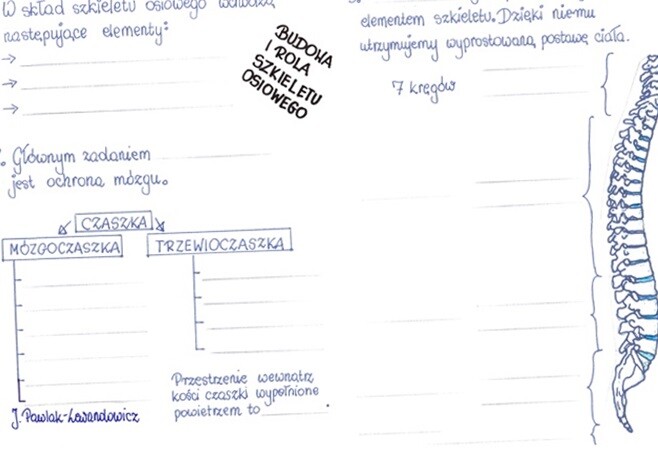 W skład szkieletu osiowego wchodzą
następujące elementy:
→
→
→
BUDOWA
I ROLA
SZKIELETU
OSIOWEGO
Głównym zadaniem
jest ochrona mózgu.
CZASZKA
MÓZGOCZASZKA
TRZEWIOCZASZKA
Przestrzenie wewnątrz
kości czaszki wypełnione
powietrzem to
J. Pawlak-Lewandowicz
elementem szkieletu. Dzięki niemu
utrzymujemy wyprostowaną postawę ciała.
7 kręgów